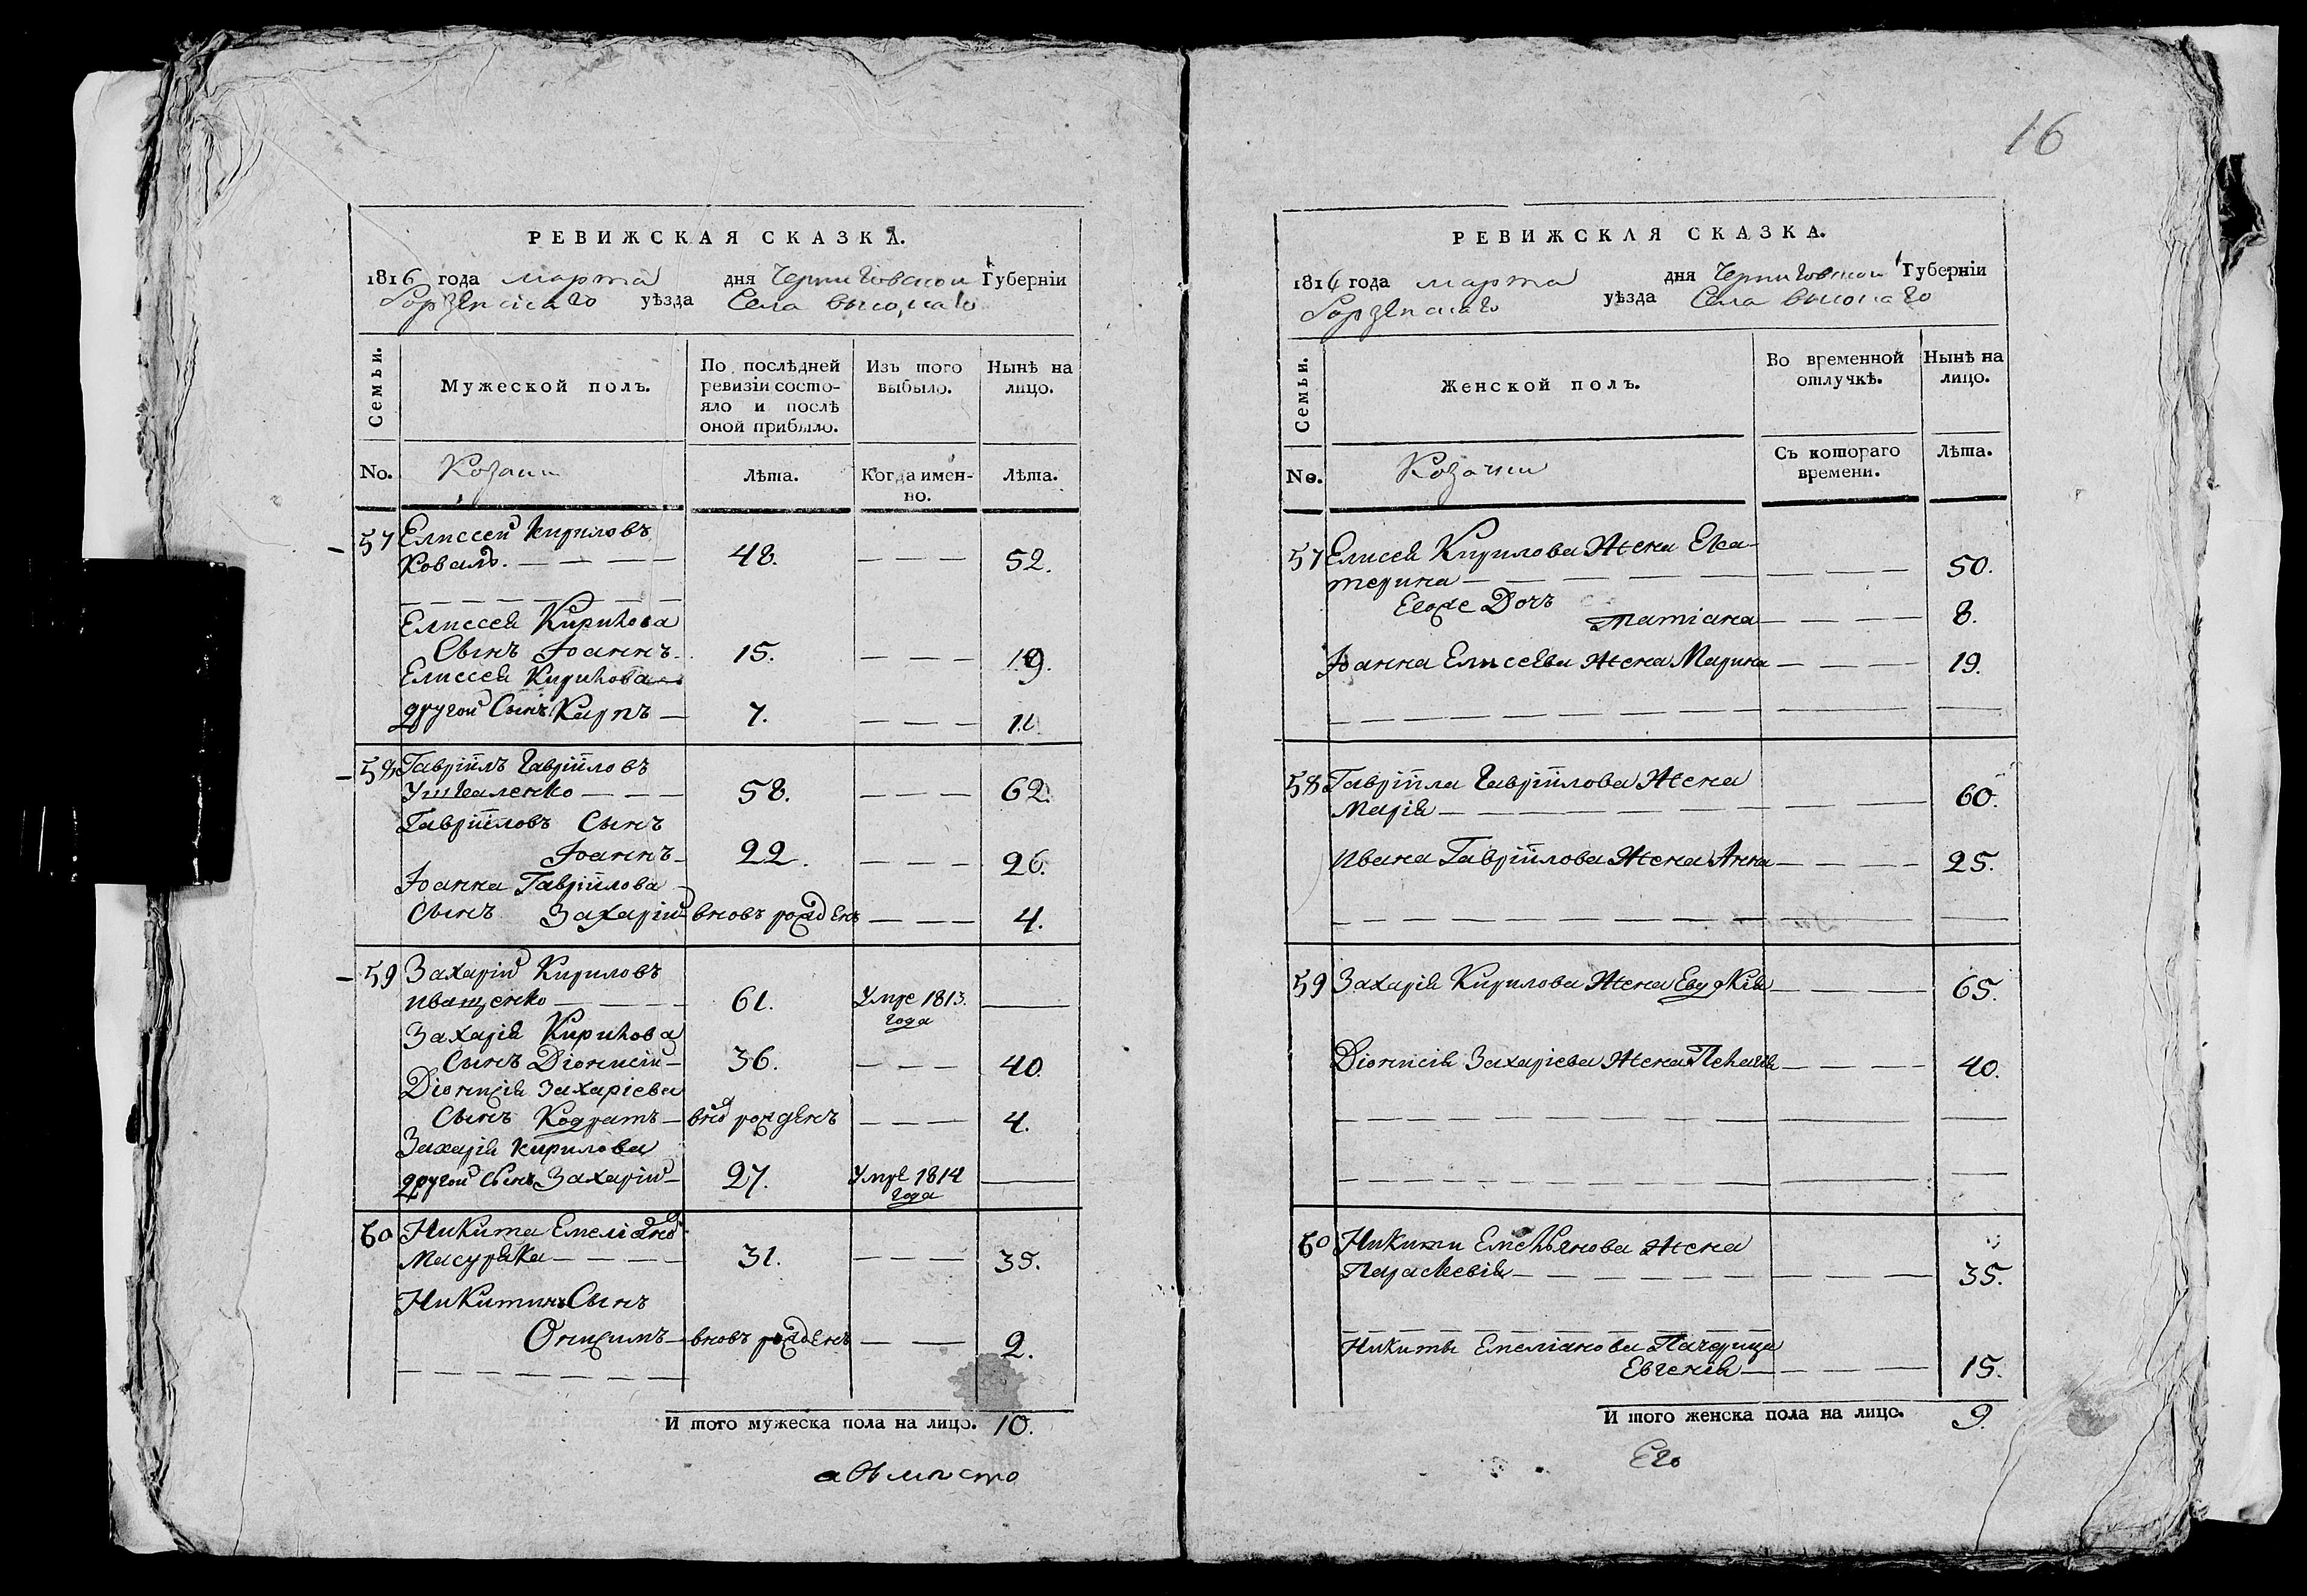 16
РЕВИЖСКАЯ СКАЗКА.
1816 года марта дня Черниговской Губерніи
Борзенскаго уѣзда Села высокаго
Семьи. Мужеской полъ. По послѣдней ревизіи состояло и послѣ оной прибыло. Изъ того выбыло. Нынѣ на лицо.
No. Козаки Лѣта. Когда именно. Лѣта.
57 Елиссей Кириловъ
Коваль. 48. 52.
Елиссея Кирилова
Сынъ Іоаннъ 15. 19.
Елиссея Кирилова
другой Сынъ Карпъ 7. 11.
58 Гавріилъ Гавріиловъ
Ушкаленко 58. 62.
Гавріиловъ Сынъ
Іоаннъ 22. 26.
Іоанна Гавріилова
Сынъ Захарій вновь рожденъ 4.
59 Захарій Кириловъ
Иващенко 61. Умре 1813. года
Захарія Кирилова
Сынъ Діонисій 36. 40.
Діонисія Захаріева
Сынъ Кодратъ вно рожденъ 4.
Захарія Кирилова
другой Сынъ Захарій 27. Умре 1814 года
60 Никита Емеліано
Масурѣка 31. 35.
Никитинъ Сынъ
Онисимъ вновь рожденъ 2.
И того мужеска пола на лицо. 10.
а вмѣсто
РЕВИЖСКАЯ СКАЗКА.
1816 года марта дня Черниговской Губерніи
Борзенскаго уѣзда Села высокаго
Семьи. Женской полъ. Во временной отлучкѣ. Нынѣ на лицо.
No. Козачки Съ котораго времени. Лѣта.
57 Елисея Кирилова Жена Ека-
терина 50.
Егоже Дочь
Татіана 8.
Іоанна Елисеева Жена Марина 19.
58 Гавріила Гавріилова Жена
Марія 60.
Ивана Гавріилова Жена Анна 25.
59 Захарія Кирилова Жена Евдокія 65.
Діонисія Захаріева Жена Пелагія 40.
60 Никиты Емельянова Жена
Параскевія 35.
Никиты Емеліанова Пачерица
Евгенія 15.
И того женска пола на лицо. 9.
Его